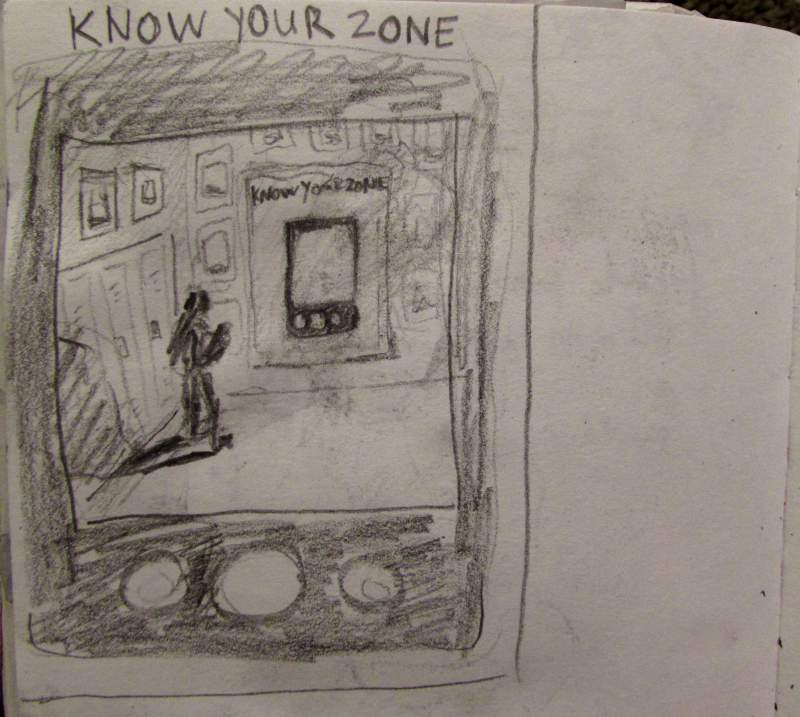 KNOW YOUR ZONE
KNOW YOUR ZONE